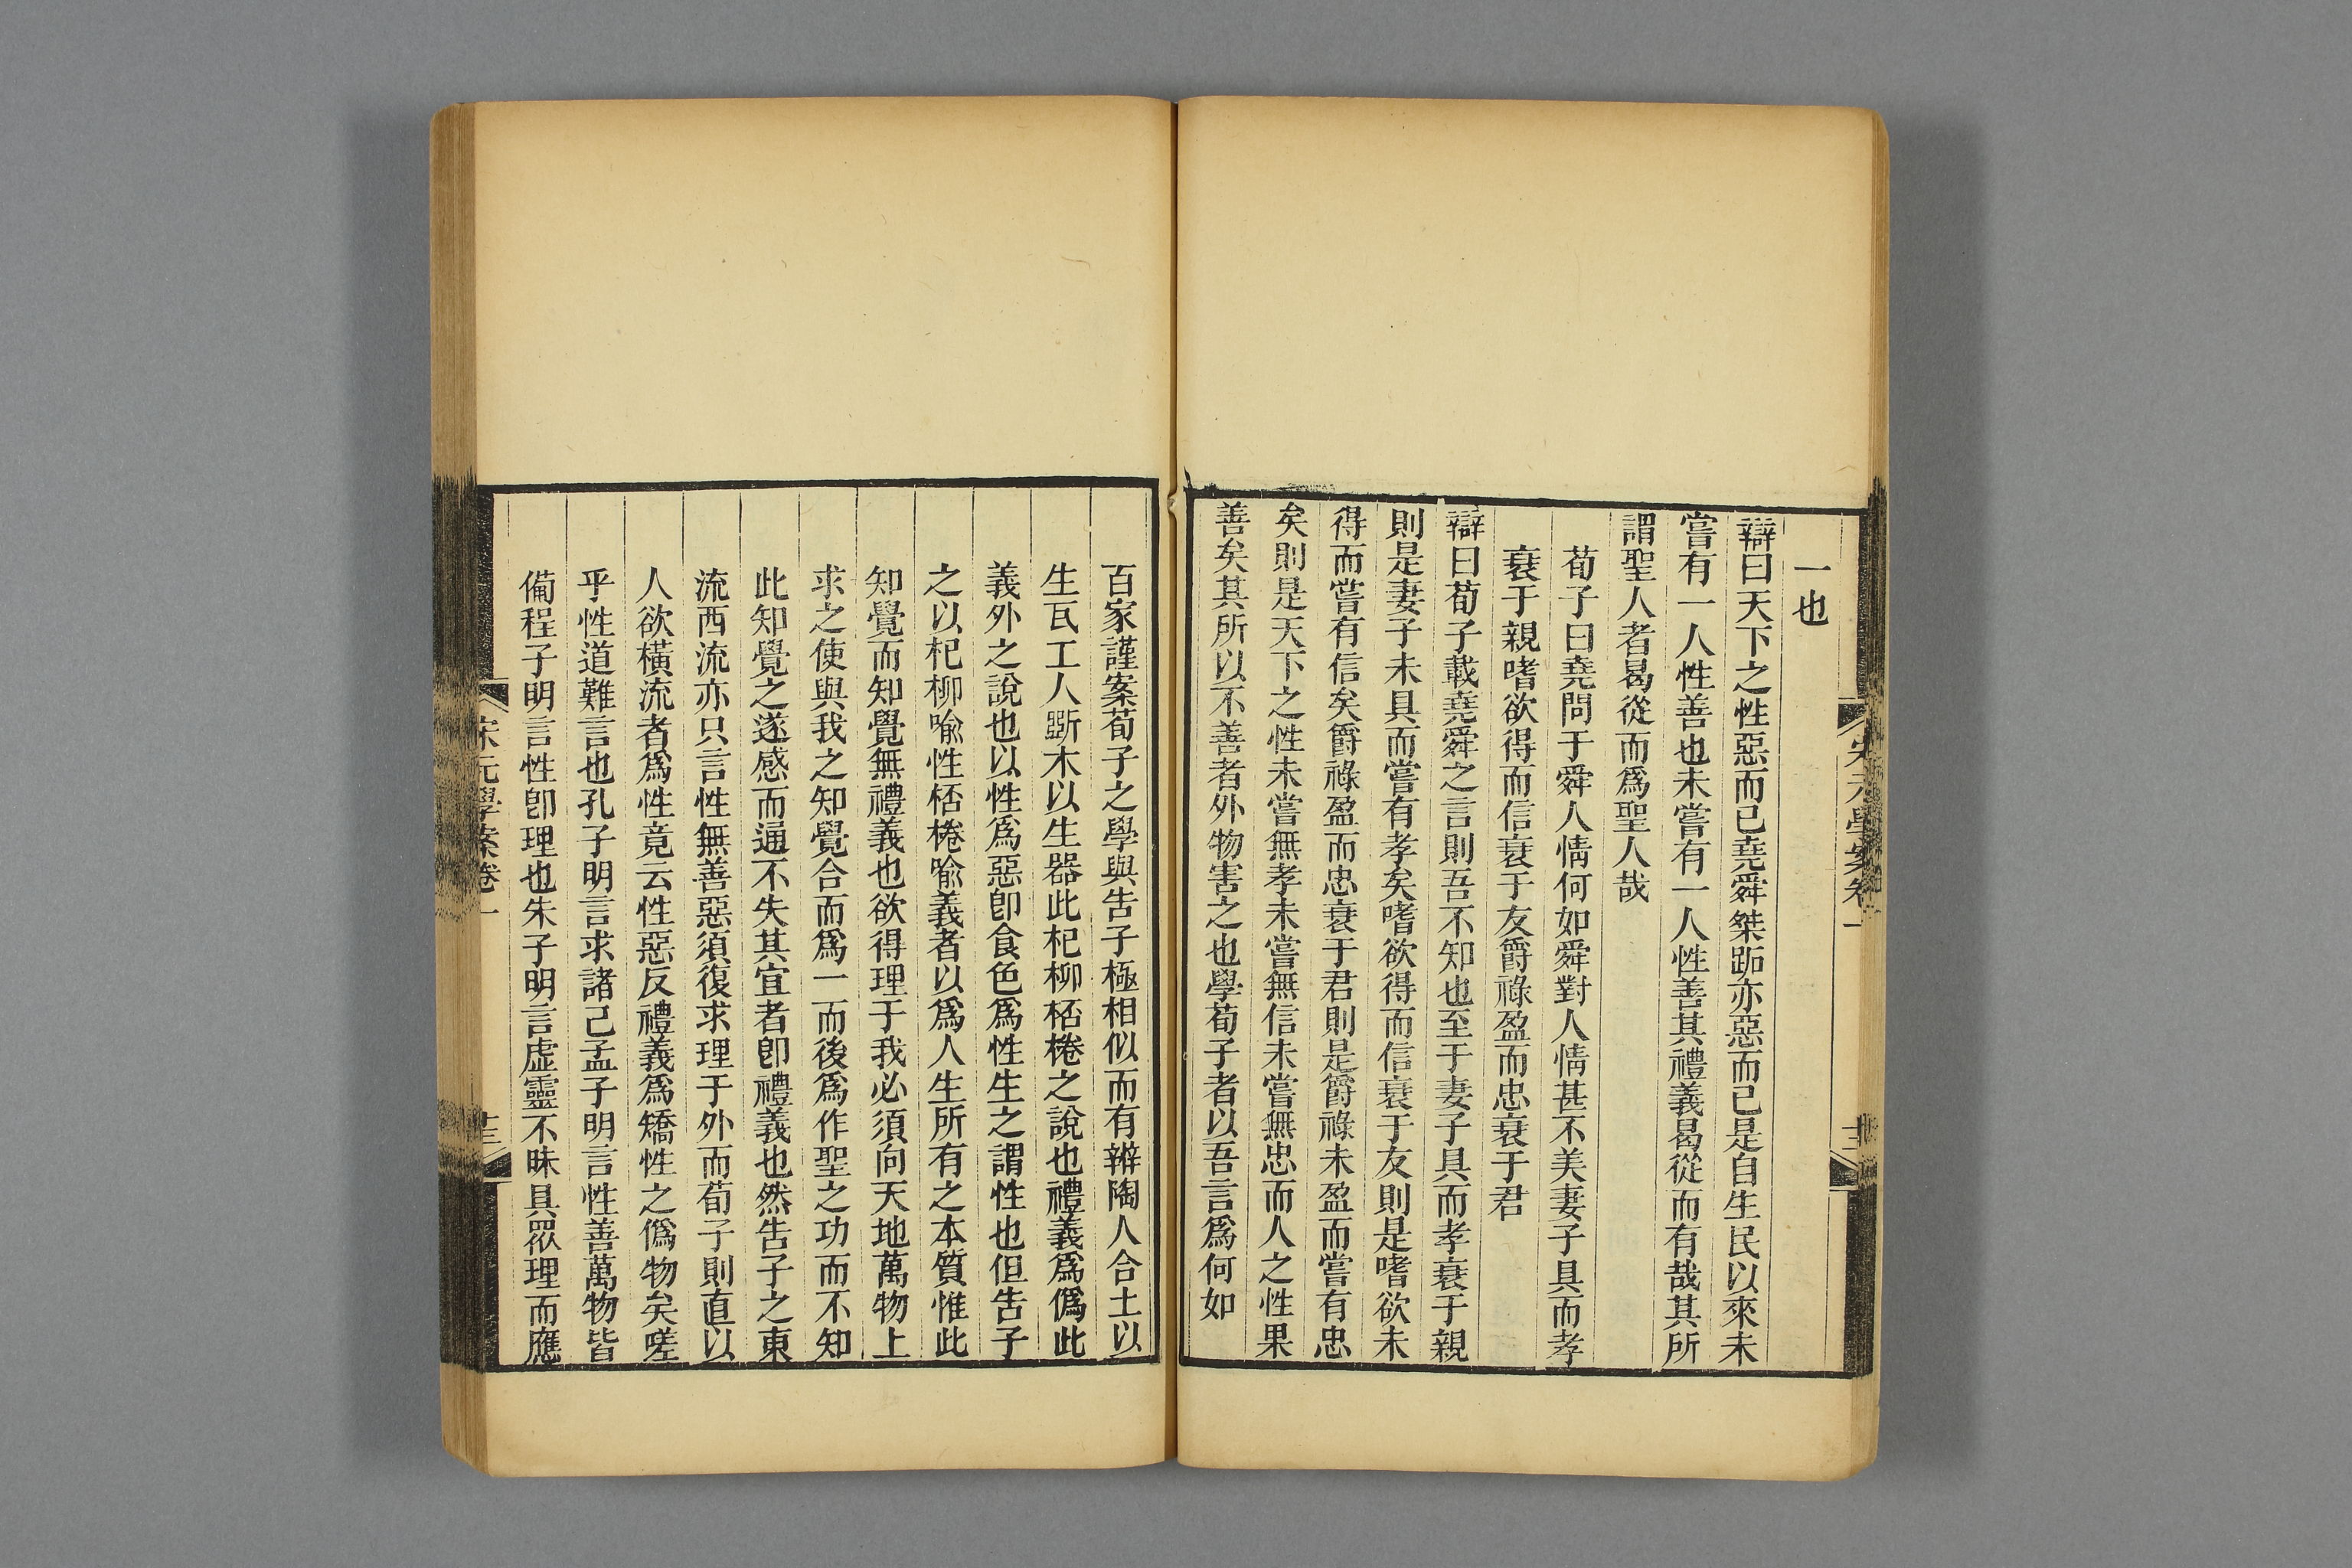 宋元學案卷一
十二
一也
辯曰天下之性惡而已堯舜桀跖亦惡而已是自生民以來未
嘗有一人性善也未嘗有一人性善其禮義曷從而有哉其所
謂聖人者曷從而爲聖人哉
荀子曰堯問于舜人情何如舜對人情甚不美妻子具而孝
衰于親嗜欲得而信衰于友爵祿盈而忠衰于君
辯曰荀子載堯舜之言則吾不知也至于妻子具而孝衰于親
則是妻子未具而嘗有孝矣嗜欲得而信衰于友則是嗜欲未
得而嘗有信矣爵祿盈而忠衰于君則是爵祿未盈而嘗有忠
矣則是天下之性未嘗無孝未嘗無信未嘗無忠而人之性果
善矣其所以不善者外物害之也學荀子者以吾言爲何如
百家謹案荀子之學與告子極相似而有辨陶人合土以
生瓦工人斲木以生器此杞柳桮棬之說也禮義爲僞此
義外之說也以性爲惡卽食色爲性生之謂性也但告子
之以杞柳喻性桮棬喻義者以爲人生所有之本質惟此
知覺而知覺無禮義也欲得理于我必須向天地萬物上
求之使與我之知覺合而爲一而後爲作聖之功而不知
此知覺之遂感而通不失其宜者卽禮義也然告子之東
流西流亦只言性無善惡須復求理于外而荀子則直以
人欲橫流者爲性竟云性惡反禮義爲矯性之僞物矣嗟
乎性道難言也孔子明言求諸己孟子明言性善萬物皆
備程子明言性卽理也朱子明言虛靈不昧具眾理而應
宋元學案卷一
十三